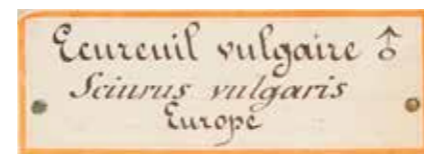 Ecureuil vulgaire ♂
Sciurus vulgaris
Europe